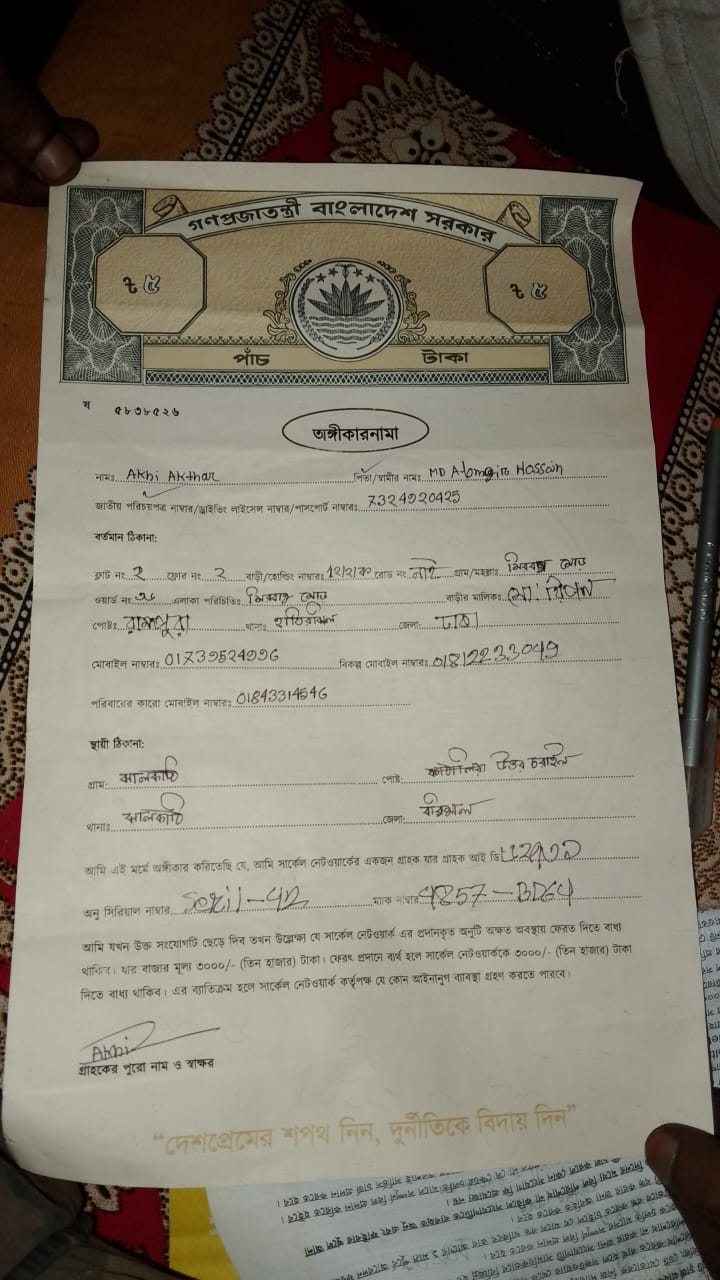 গণপ্রজাতন্ত্রী বাংলাদেশ সরকার
৳ ৫ ৳ ৫
পাঁচ টাকা
ষ ৫৮৩৮৫২৬
অঙ্গীকারনামা
নামঃ Akhi Akthar পিতা/স্বামীর নামঃ MD Alomgir Hossain
জাতীয় পরিচয়পত্র নাম্বার/ড্রাইভিং লাইসেন্স নাম্বার/পাসপোর্ট নাম্বারঃ 7324920425
বর্তমান ঠিকানা:
ফ্লাট নং ২ ফ্লোর নং ২ বাড়ী/হোল্ডিং নাম্বারঃ রোড নং নাই গ্রাম/মহল্লাঃ মিরবাগ মোড়
ওয়ার্ড নং এলাকা পরিচিতিঃ মিরবাগ মোড় বাড়ীর মালিকঃ মো: রিপন
পোষ্টঃ রামপুরা থানাঃ হাতিরঝিল জেলা: ঢাকা
মোবাইল নাম্বারঃ 01739524996 বিকল্প মোবাইল নাম্বারঃ 01812233049
পরিবারের কারো মোবাইল নাম্বারঃ 01843314546
স্থায়ী ঠিকানা:
গ্রাম: ঝালকাঠি পোষ্ট: উত্তর
থানাঃ ঝালকাঠি জেলা: বরিশাল
আমি এই মর্মে অঙ্গীকার করিতেছি যে, আমি সার্কেল নেটওয়ার্কের একজন গ্রাহক যার গ্রাহক আই ডি
অনু সিরিয়াল নাম্বার ম্যাক নাম্বার 4857-BD64
আমি যখন উক্ত সংযোগটি ছেড়ে দিব তখন উল্লেক্ষা যে সার্কেল নেটওয়ার্ক এর প্রদানকৃত অনুটি অক্ষত অবস্থায় ফেরত দিতে বাধ্য
থাকিব। যার বাজার মূল্য ৩০০০/- (তিন হাজার) টাকা। ফেরৎ প্রদানে ব্যর্থ হলে সার্কেল নেটওয়ার্ককে ৩০০০/- (তিন হাজার) টাকা
দিতে বাধ্য থাকিব। এর ব্যাতিক্রম হলে সার্কেল নেটওয়ার্ক কর্তৃপক্ষ যে কোন আইনানুগ ব্যাবস্থা গ্রহণ করতে পারবে।
Akhi
গ্রাহকের পুরো নাম ও স্বাক্ষর
“দেশপ্রেমের শপথ নিন, দুর্নীতিকে বিদায় দিন”